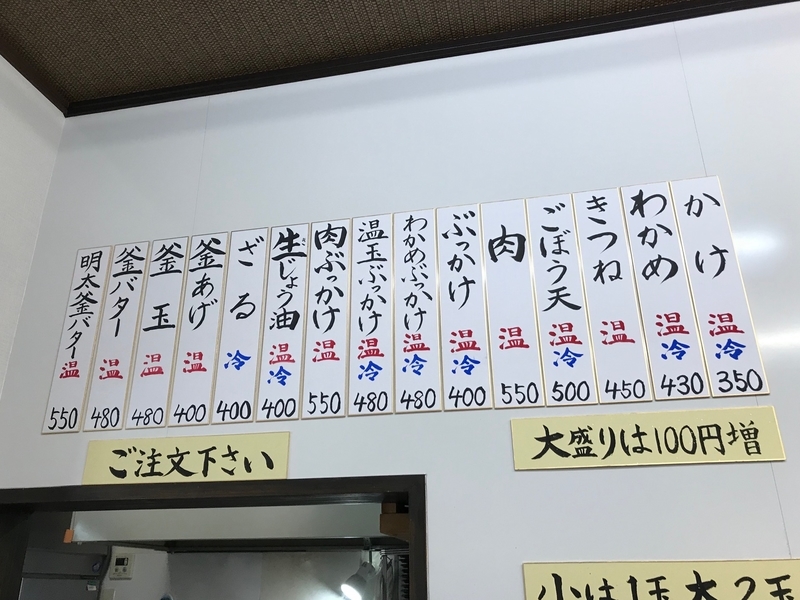 かけ 温 冷 350
わかめ 温 冷 430
きつね 温 450
ごぼう天 温 冷 500
肉 温 550
ぶっかけ 温 冷 400
わかめぶっかけ 温 冷 480
温玉ぶっかけ 温 冷 480
肉ぶっかけ 温 550
生じょう油 温 冷 400
ざる 冷 400
釜あげ 温 400
釜玉 温 480
釜バター 温 480
明太釜バター 温 550
大盛りは100円増
ご注文下さい
小は1玉大2玉